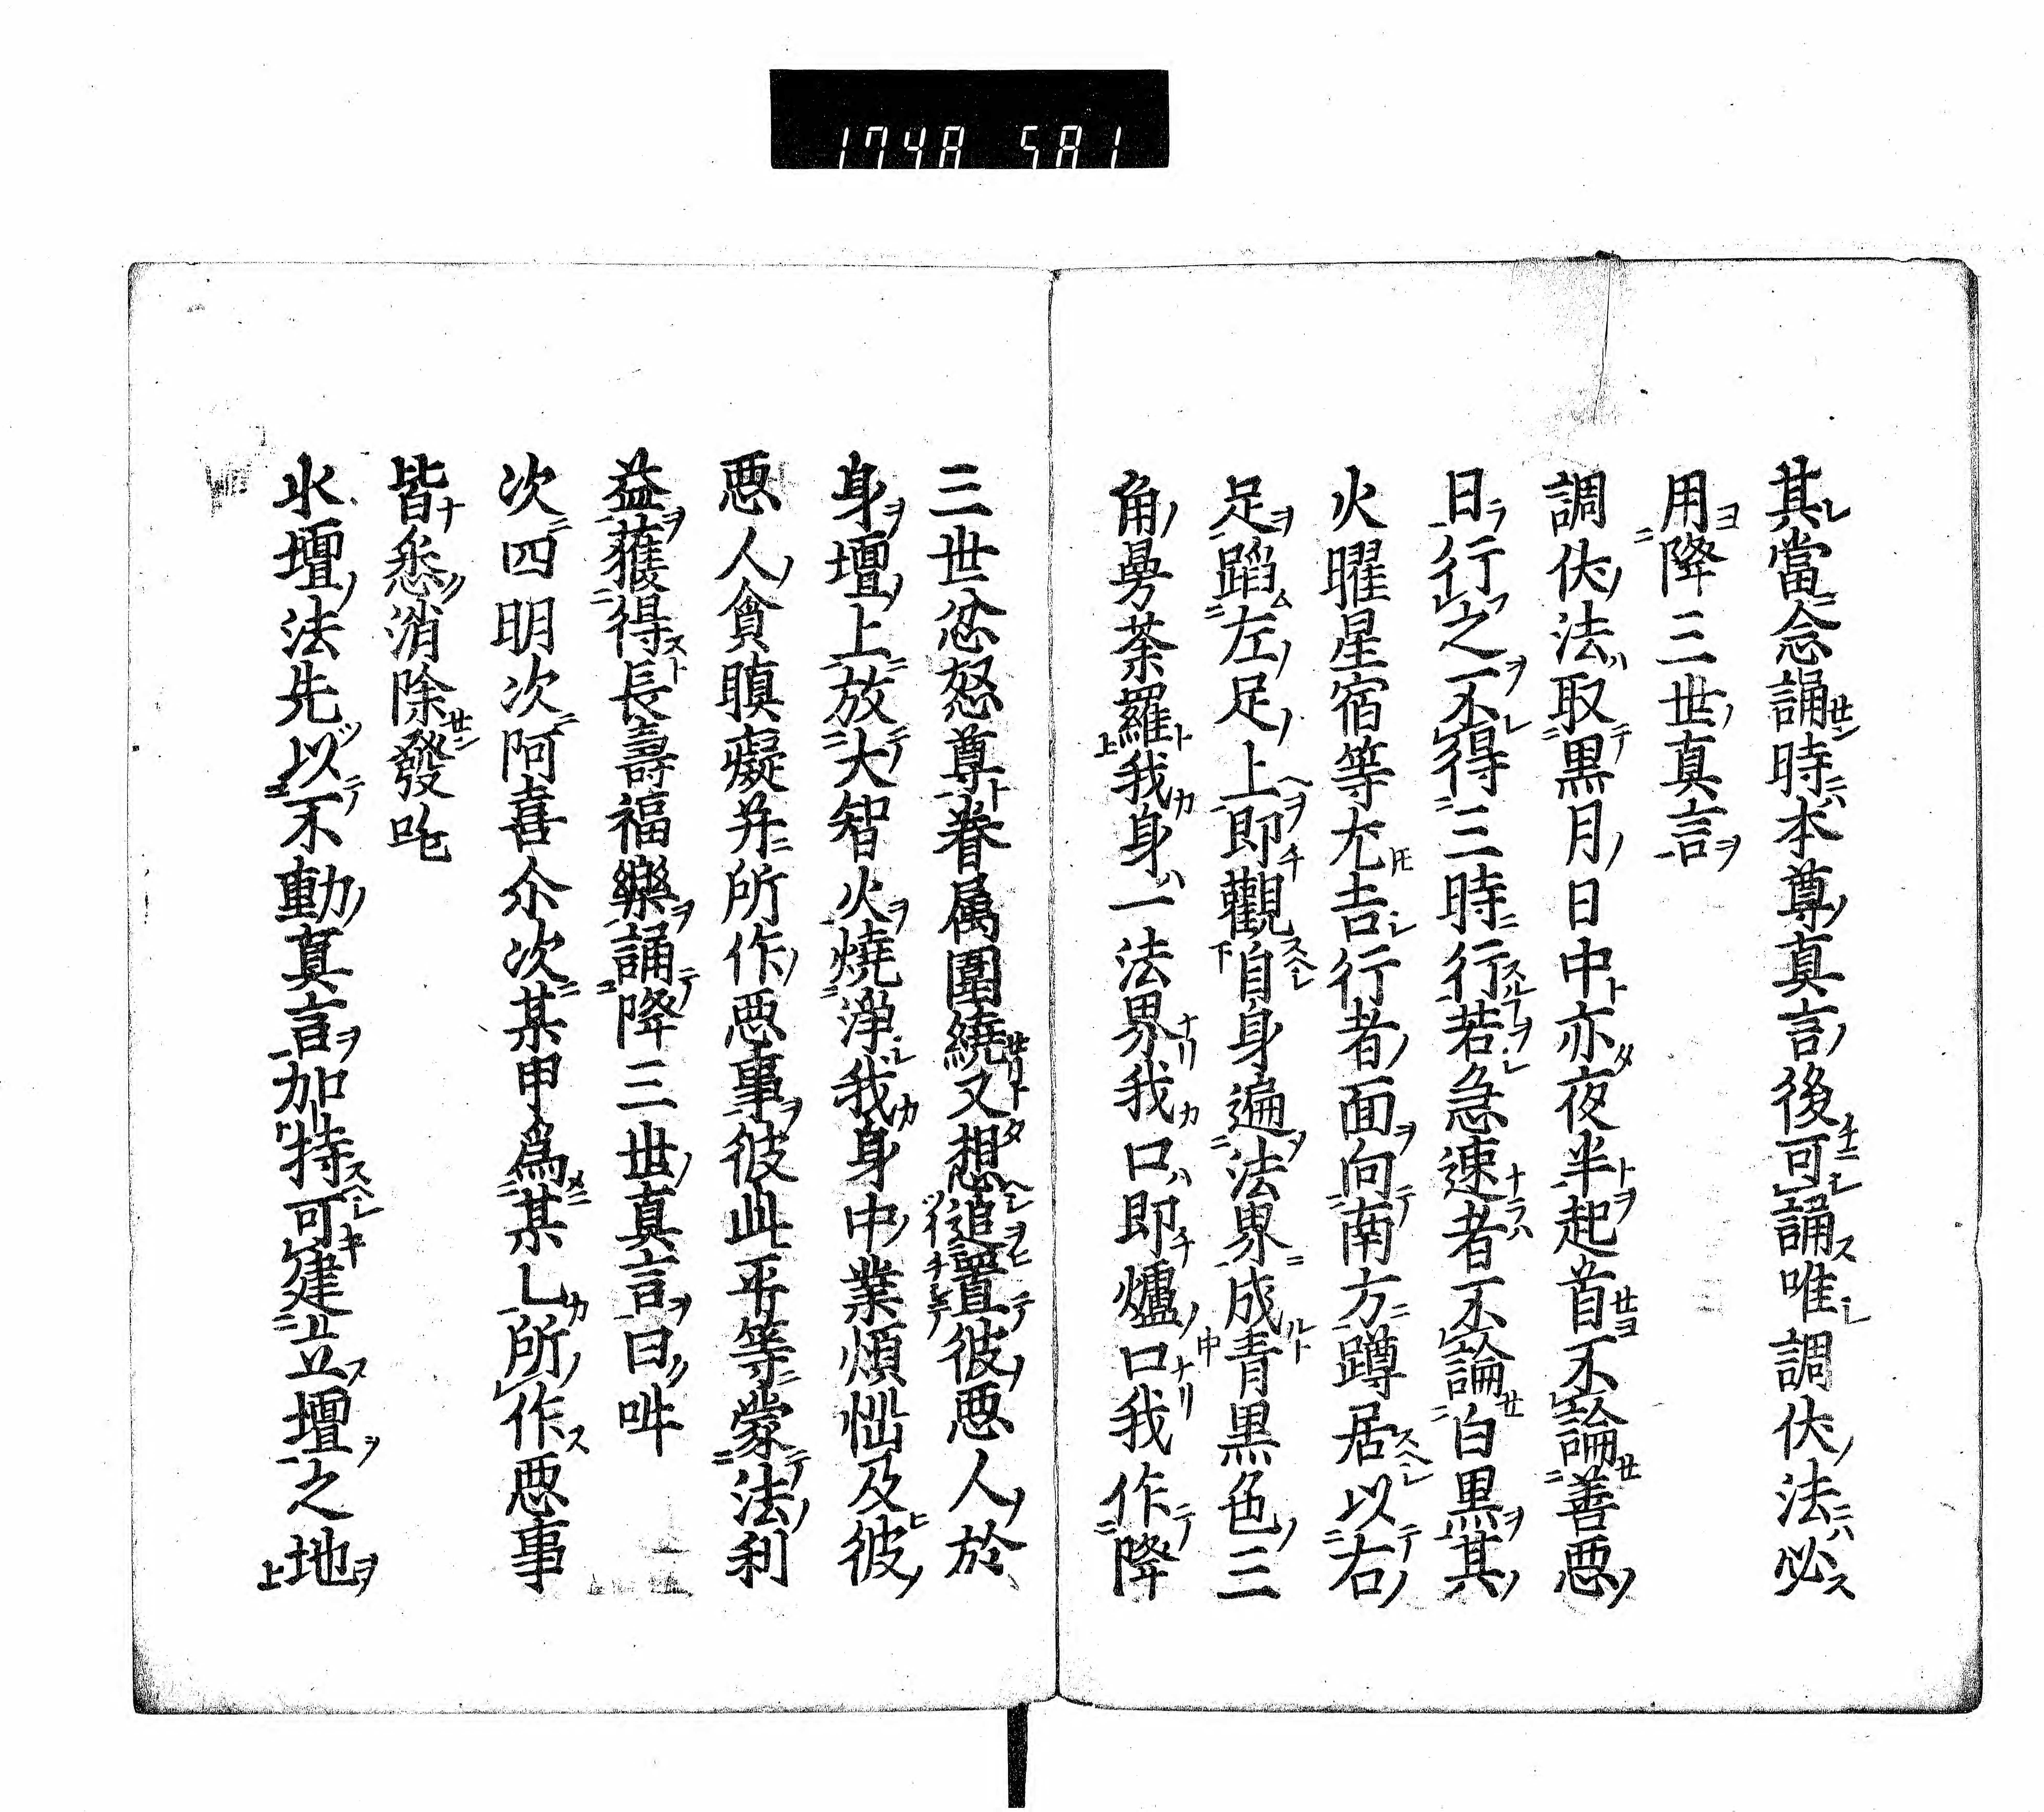 1748 581
其當念誦時本尊真言後可誦唯調伏法必
用降三世真言
調伏法取黒月日中亦夜半起首不論善悪
日行之不得三時行若急速者不論白黒其
火曜星宿等尤吉行者面向南方蹲居以右
足蹈左足上即觀自身遍法界成青黒色三
角曼荼羅我身一法界我口即爐口我作降
三世忿怒尊眷属圍繞又想追置彼悪人於
身壇上放大智火燒淨我身中業煩惱及彼
悪人貪瞋癡并所作悪事彼此平等蒙法利
益獲得長壽福樂誦降三世真言曰吽
次四明次阿喜尒次某甲為某乚所作悪事
皆悉消除發吒
水壇法先以不動真言加持可建立壇之地